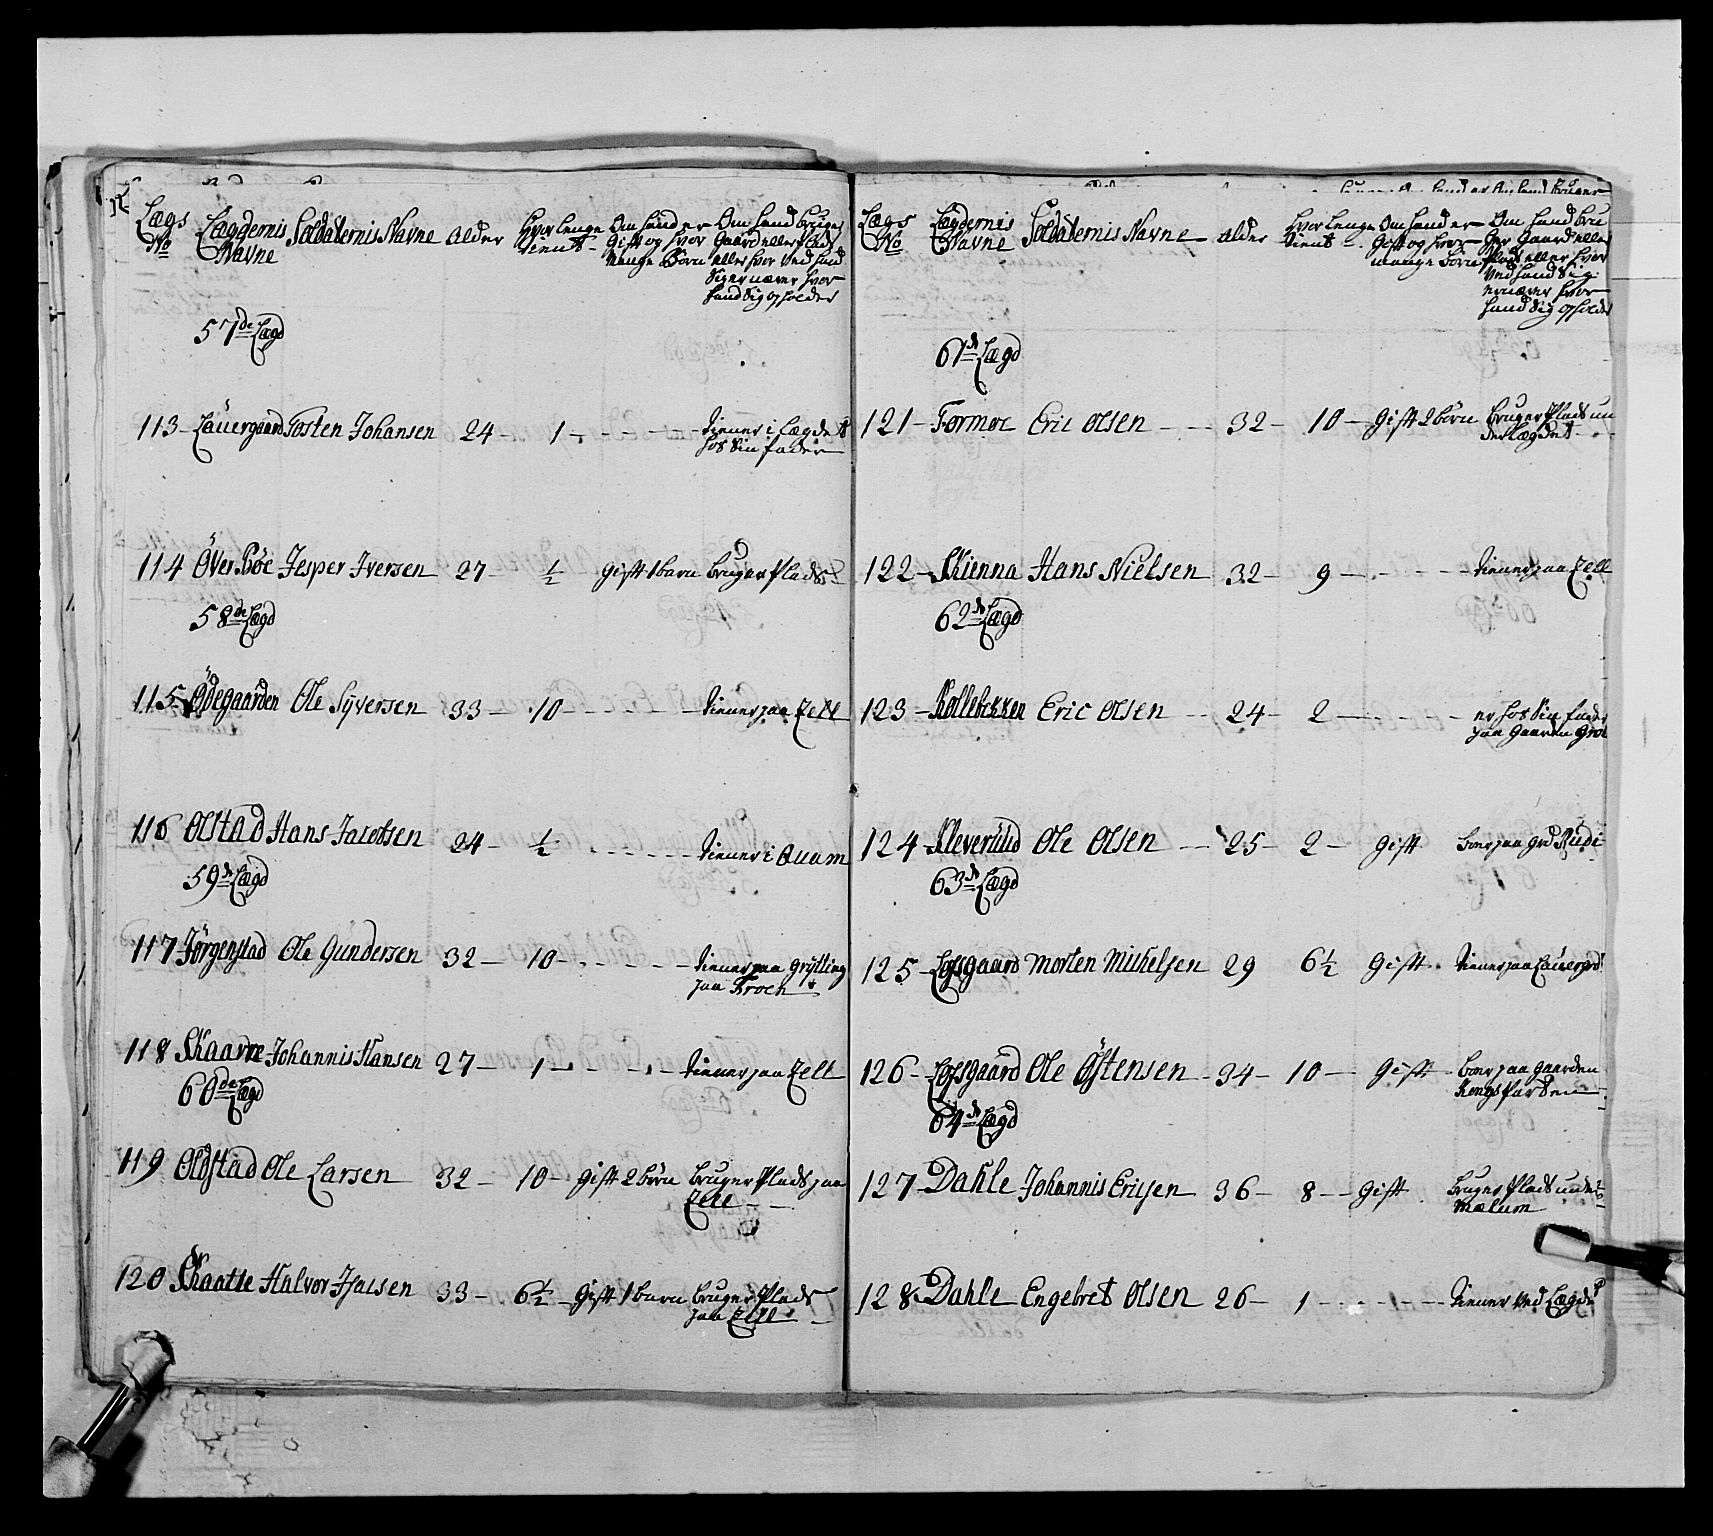 Lægs No
Lægdernis Navne
Soldaternis Navne
alder
Hvor lenge tient
Om hand er Gift og hvor mange börn
Om hand bruger Gaard eller Plads eller hvor ved hand Sig ernærer hvor hand Sig opholder
57de Lægd
113 Lauergaard Tosten Johansen 24 1 tiener i Lægdet
hos Sin fader
114 Över Böe Jesper Iversen 27 ½ gift 1 barn bruger Plads
58de Lægd
115 Ödegaarden Ole Syversen 33 10 tiener paa Zell
116 Olstad Hans Jacobsen 24 ½ tiener i Quam
59de Lægd
117 Jörgenstad Ole Gundersen 32 10 tiener paa Grytting
paa Froen
118 Skaarre Johannis Hansen 27 1 tiener paa Zell
60de Lægd
119 Oldstad Ole Larsen 32 10 gift 2 börn bruger Plads paa
Zell
120 Skaatte Halvor Isacsen 33 6½ gift 1 barn bruger Plads
paa Zell
Lægs No
Lægdernis Navne
Soldaternis Navne
alder
Hvor lenge tient
Om hand er Gift og hvor mange börn
Om hand bruger Gaard eller Plads eller hvor ved hand Sig ernærer hvor hand Sig opholder
61de Lægd
121 Formoe Eric Olsen 32 10 gift 2 börn bruger Plads un
der Lægdet
122 Skienna Hans Nielsen 32 9 tiener paa Zell
62de Lægd
123 Kollebekken Eric Olsen 24 2 er hos Sin fader
paa Gaarden
124 Kleverud Ole Olsen 25 2 gift boer paa Grd Rudi
63de Lægd
125 Losgaard Morten Michelsen 29 6½ gift tiener paa Lauergrd
126 Losgaard Ole Östensen 34 10 gift boer paa Gaarden
Kongsparten
64de Lægd
127 Dahle Johannis Ericsen 36 8 gift bruger Plads under
Mælum
128 Dahle Engebret Olsen 26 1 tiener ved Lægdet